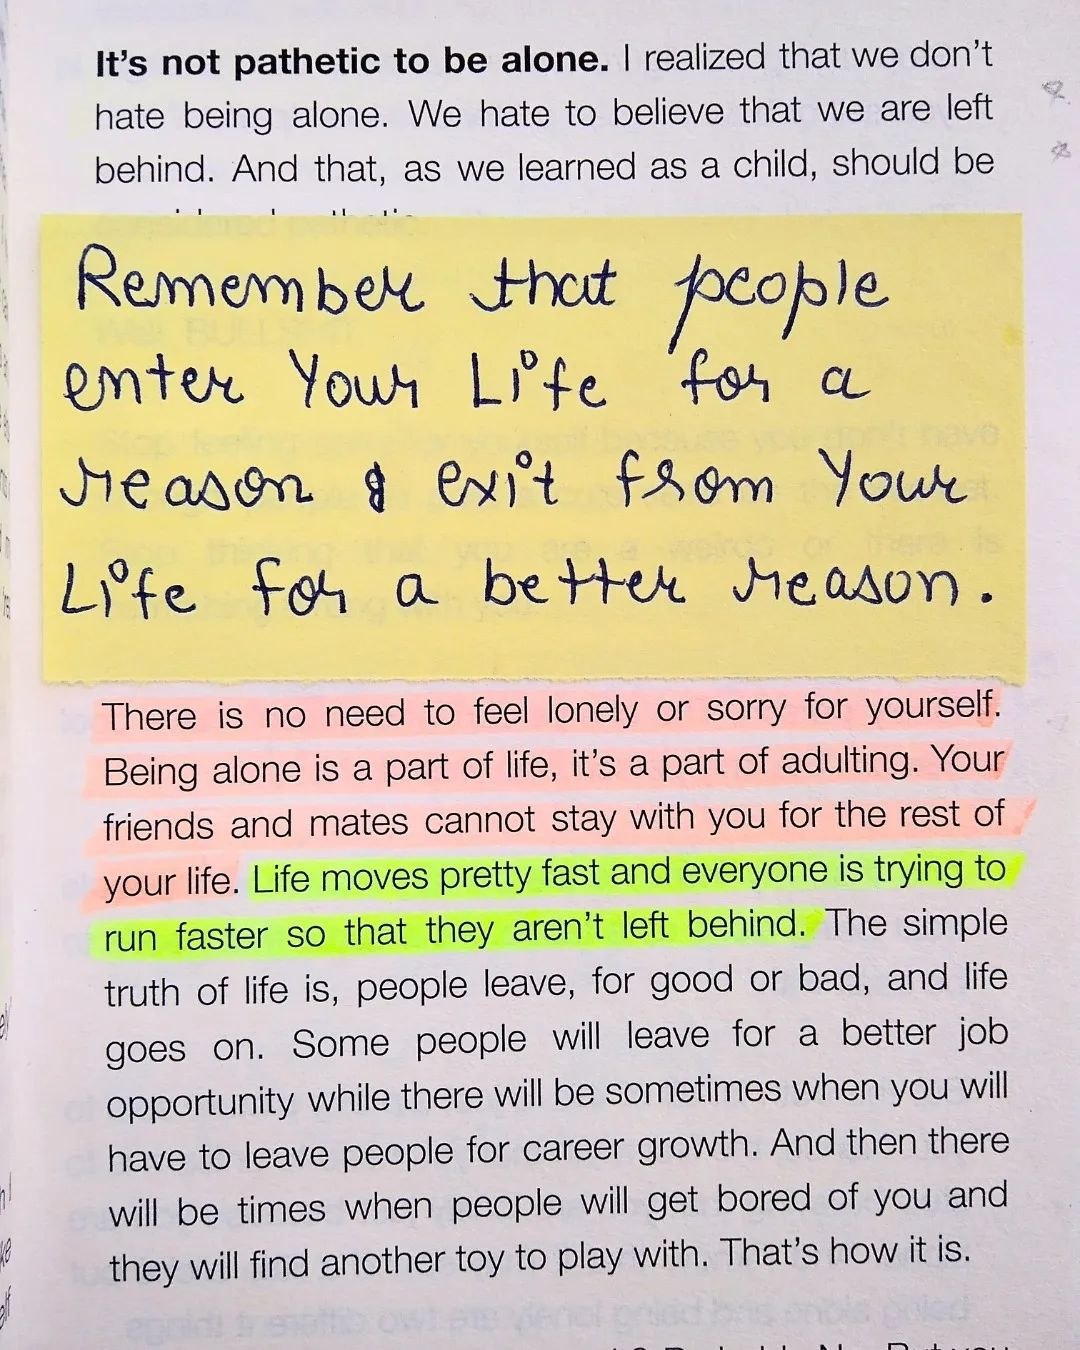 It's not pathetic to be alone. I realized that we don't
hate being alone. We hate to believe that we are left
behind. And that, as we learned as a child, should be
considered pathetic.
Remember that people
enter Your Life for a
reason & exit from Your
Life for a better reason.
There is no need to feel lonely or sorry for yourself.
Being alone is a part of life, it's a part of adulting. Your
friends and mates cannot stay with you for the rest of
your life. Life moves pretty fast and everyone is trying to
run faster so that they aren't left behind. The simple
truth of life is, people leave, for good or bad, and life
goes on. Some people will leave for a better job
opportunity while there will be sometimes when you will
have to leave people for career growth. And then there
will be times when people will get bored of you and
they will find another toy to play with. That's how it is.